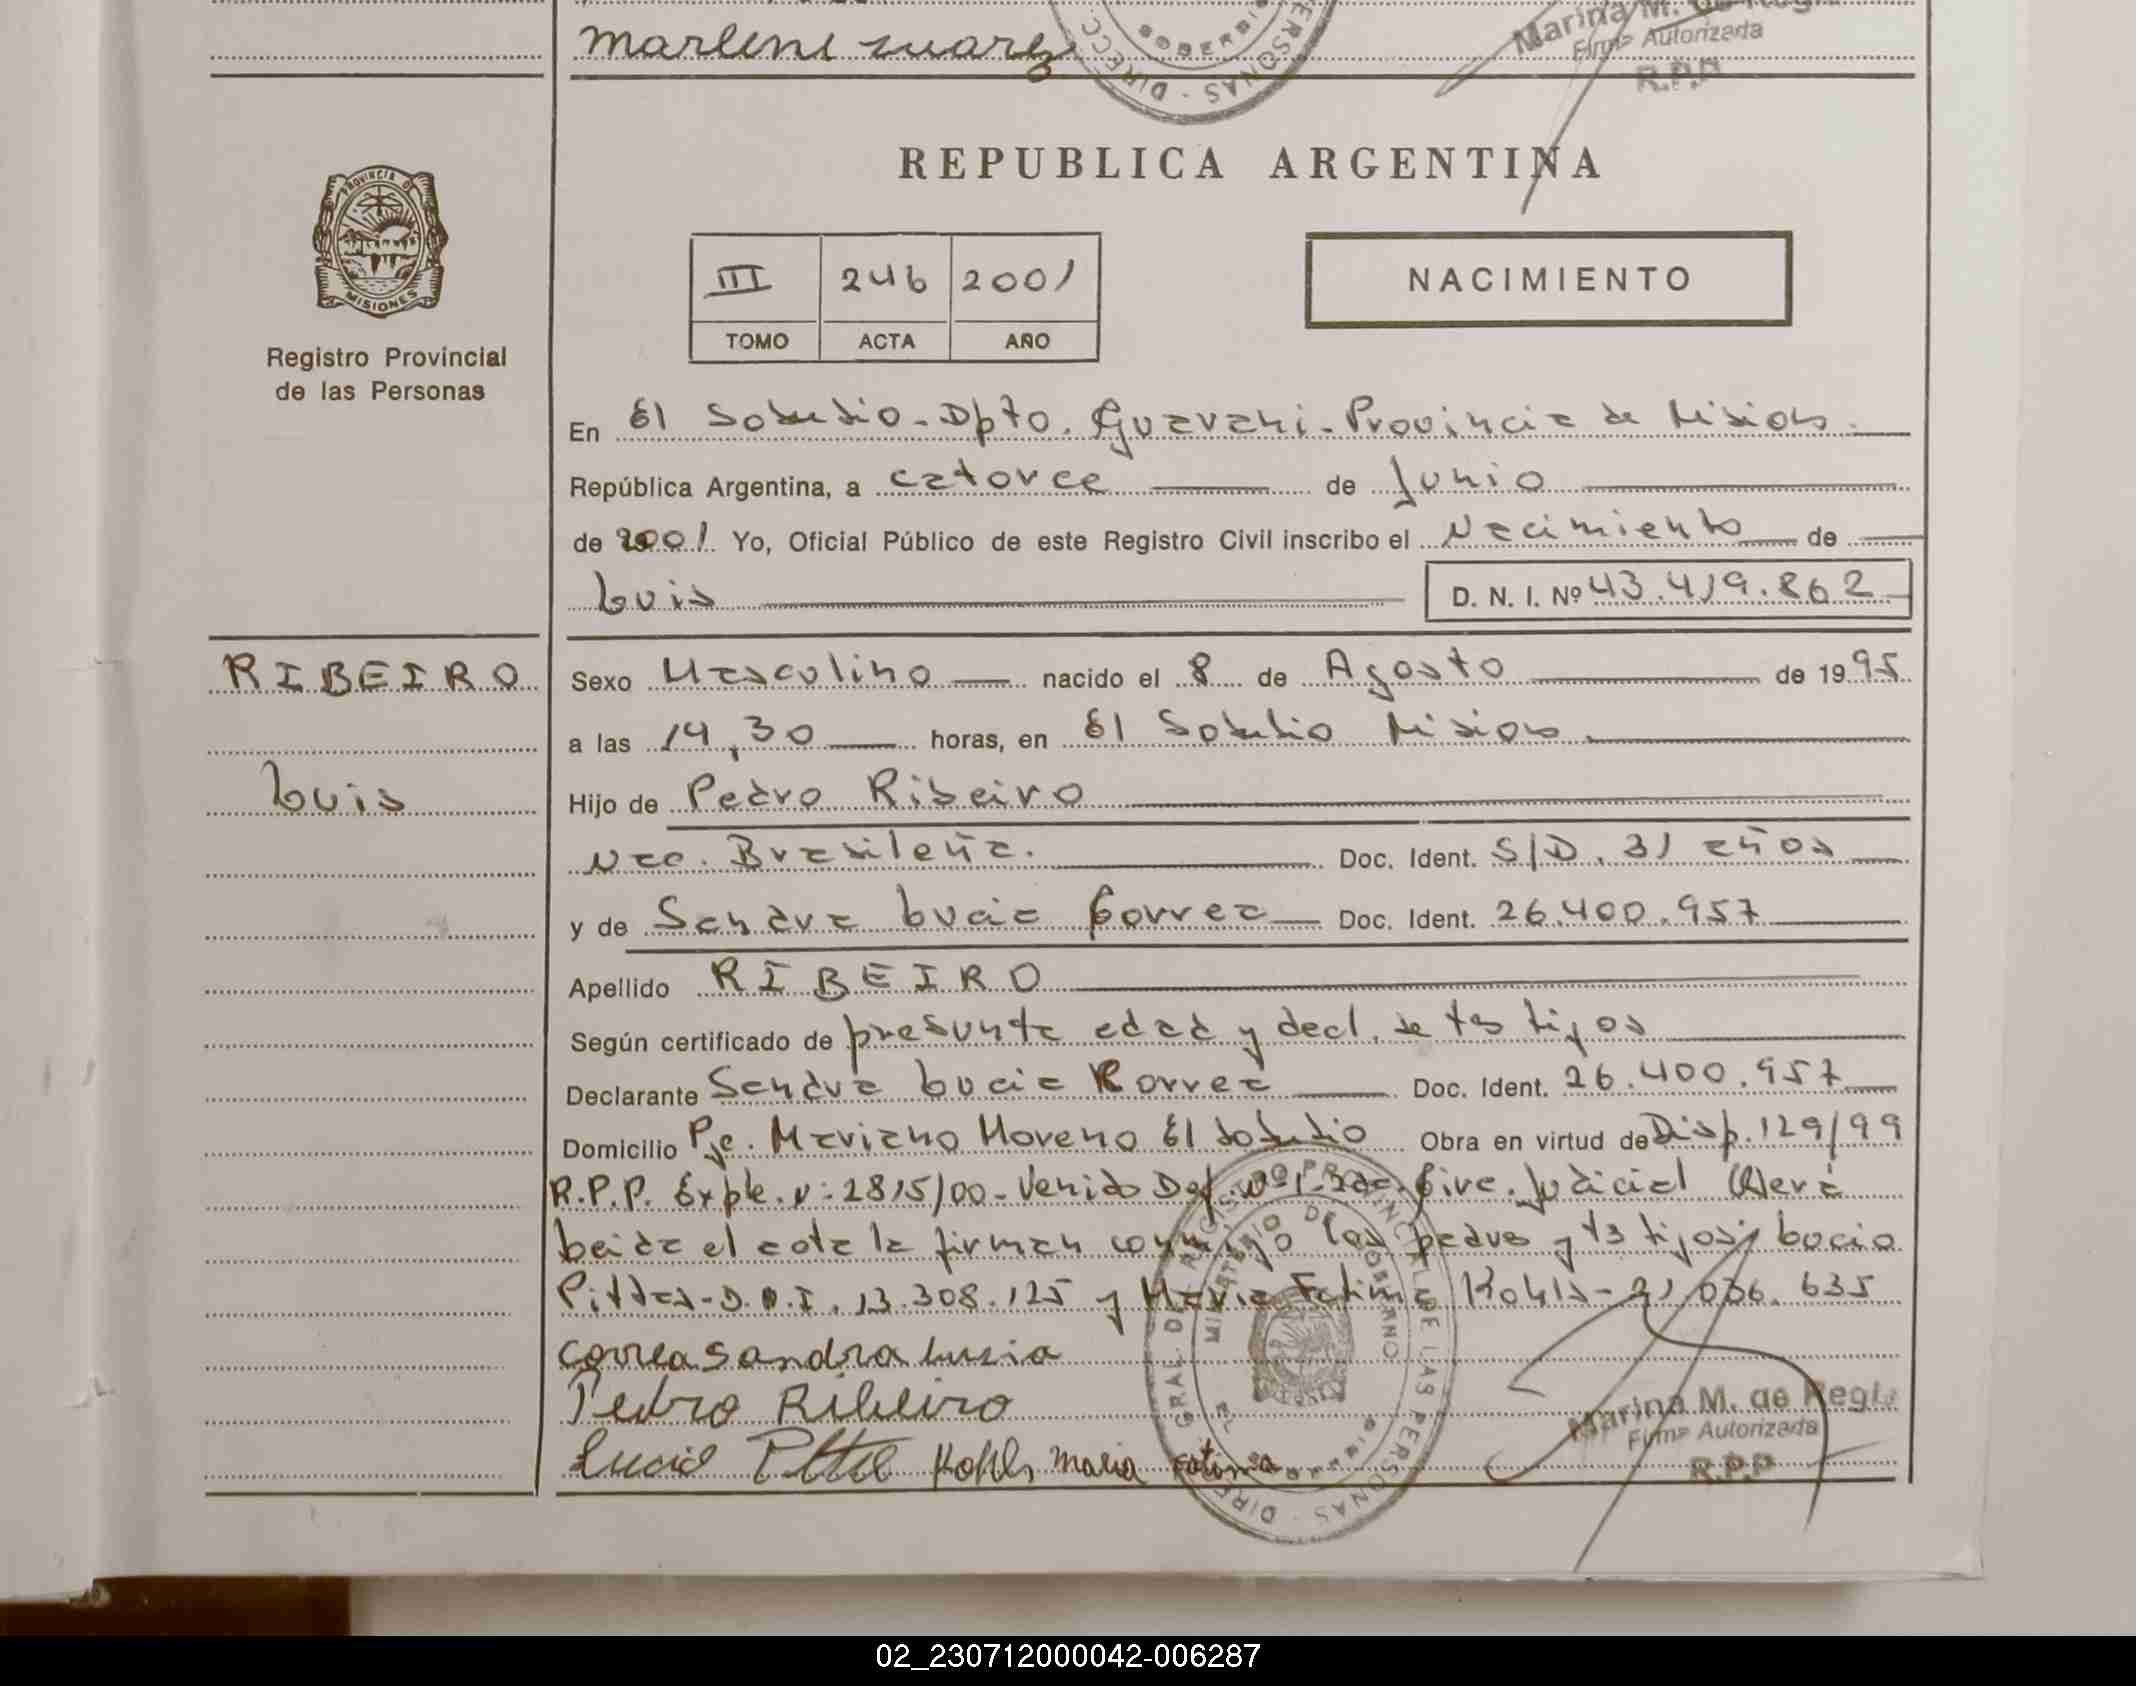 Marleni Suarez
SOBERBIO
PERSONAS - DIRECC
Marina M. de Regi
Firma Autorizada
R.P.P
REPUBLICA ARGENTINA
PROVINCIA DE MISIONES
Registro Provincial
de las Personas
III 246 2001
TOMO ACTA AÑO
NACIMIENTO
En El Soberbio - Dpto. Guarani - Provincia de Misiones.
República Argentina, a catorce de Junio
de 2001 Yo, Oficial Público de este Registro Civil inscribo el Nacimiento de
Luis D. N. I. Nº 43.419.862
RIBEIRO
Luis
Sexo Masculino nacido el 8 de Agosto de 1995
a las 14,30 horas, en El Soberbio Misiones.
Hijo de Pedro Ribeiro
Nac. Brasileña. Doc. Ident. S/D. 31 años
y de Sandra Lucia Correa Doc. Ident. 26.400.957
Apellido RIBEIRO
Según certificado de presunta edad y decl. de testigos
Declarante Sandra Lucia Correa Doc. Ident. 26.400.957
Domicilio Pje. Mariano Moreno El Soberbio Obra en virtud de Disp. 129/99
R.P.P. Expte. N: 2815/00 - Venido Def. Nº 1 - 2da. Circ. Judicial Oberá
Leida el acta la firman conmigo los padres y testigos: Lucio
Pittas - D.N.I. 13.308.125 y Maria Fatima Kohls - 21.036.635
Correa Sandra Lucia
Pedro Ribeiro
Lucio Kohls Maria Fatima
DIRECC GRAL DE REGISTRO PROVINCIAL DE LAS PERSONAS
MINISTERIO DE GOBIERNO
EL SOBERBIO
Marina M. de Regi
Firma Autorizada
R.P.P
02_230712000042-006287